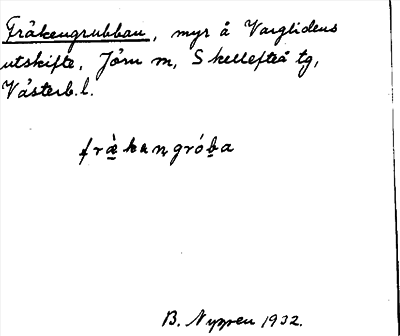 Fräkengrubban, myr å Varglidens
utskifte, Jörn sn, Skellefteå tg,
Västerb.l.
frä̀kangróba
B. Nygren 1932.